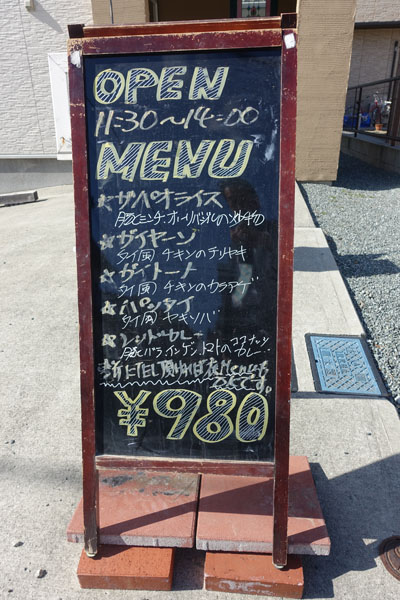 OPEN
11:30~14:00
MENU
☆ガパオライス
豚ミンチ・ホーリーバジルの炒めもの
☆ガイヤーン
タイ風 チキンのテリヤキ
☆ガイトート
タイ風 チキンのカラアゲ
☆パッタイ
タイ風 ヤキソバ
☆レッドカレー
豚バラ インゲン トマトのココナッツカレー
Menuも
です。
¥980